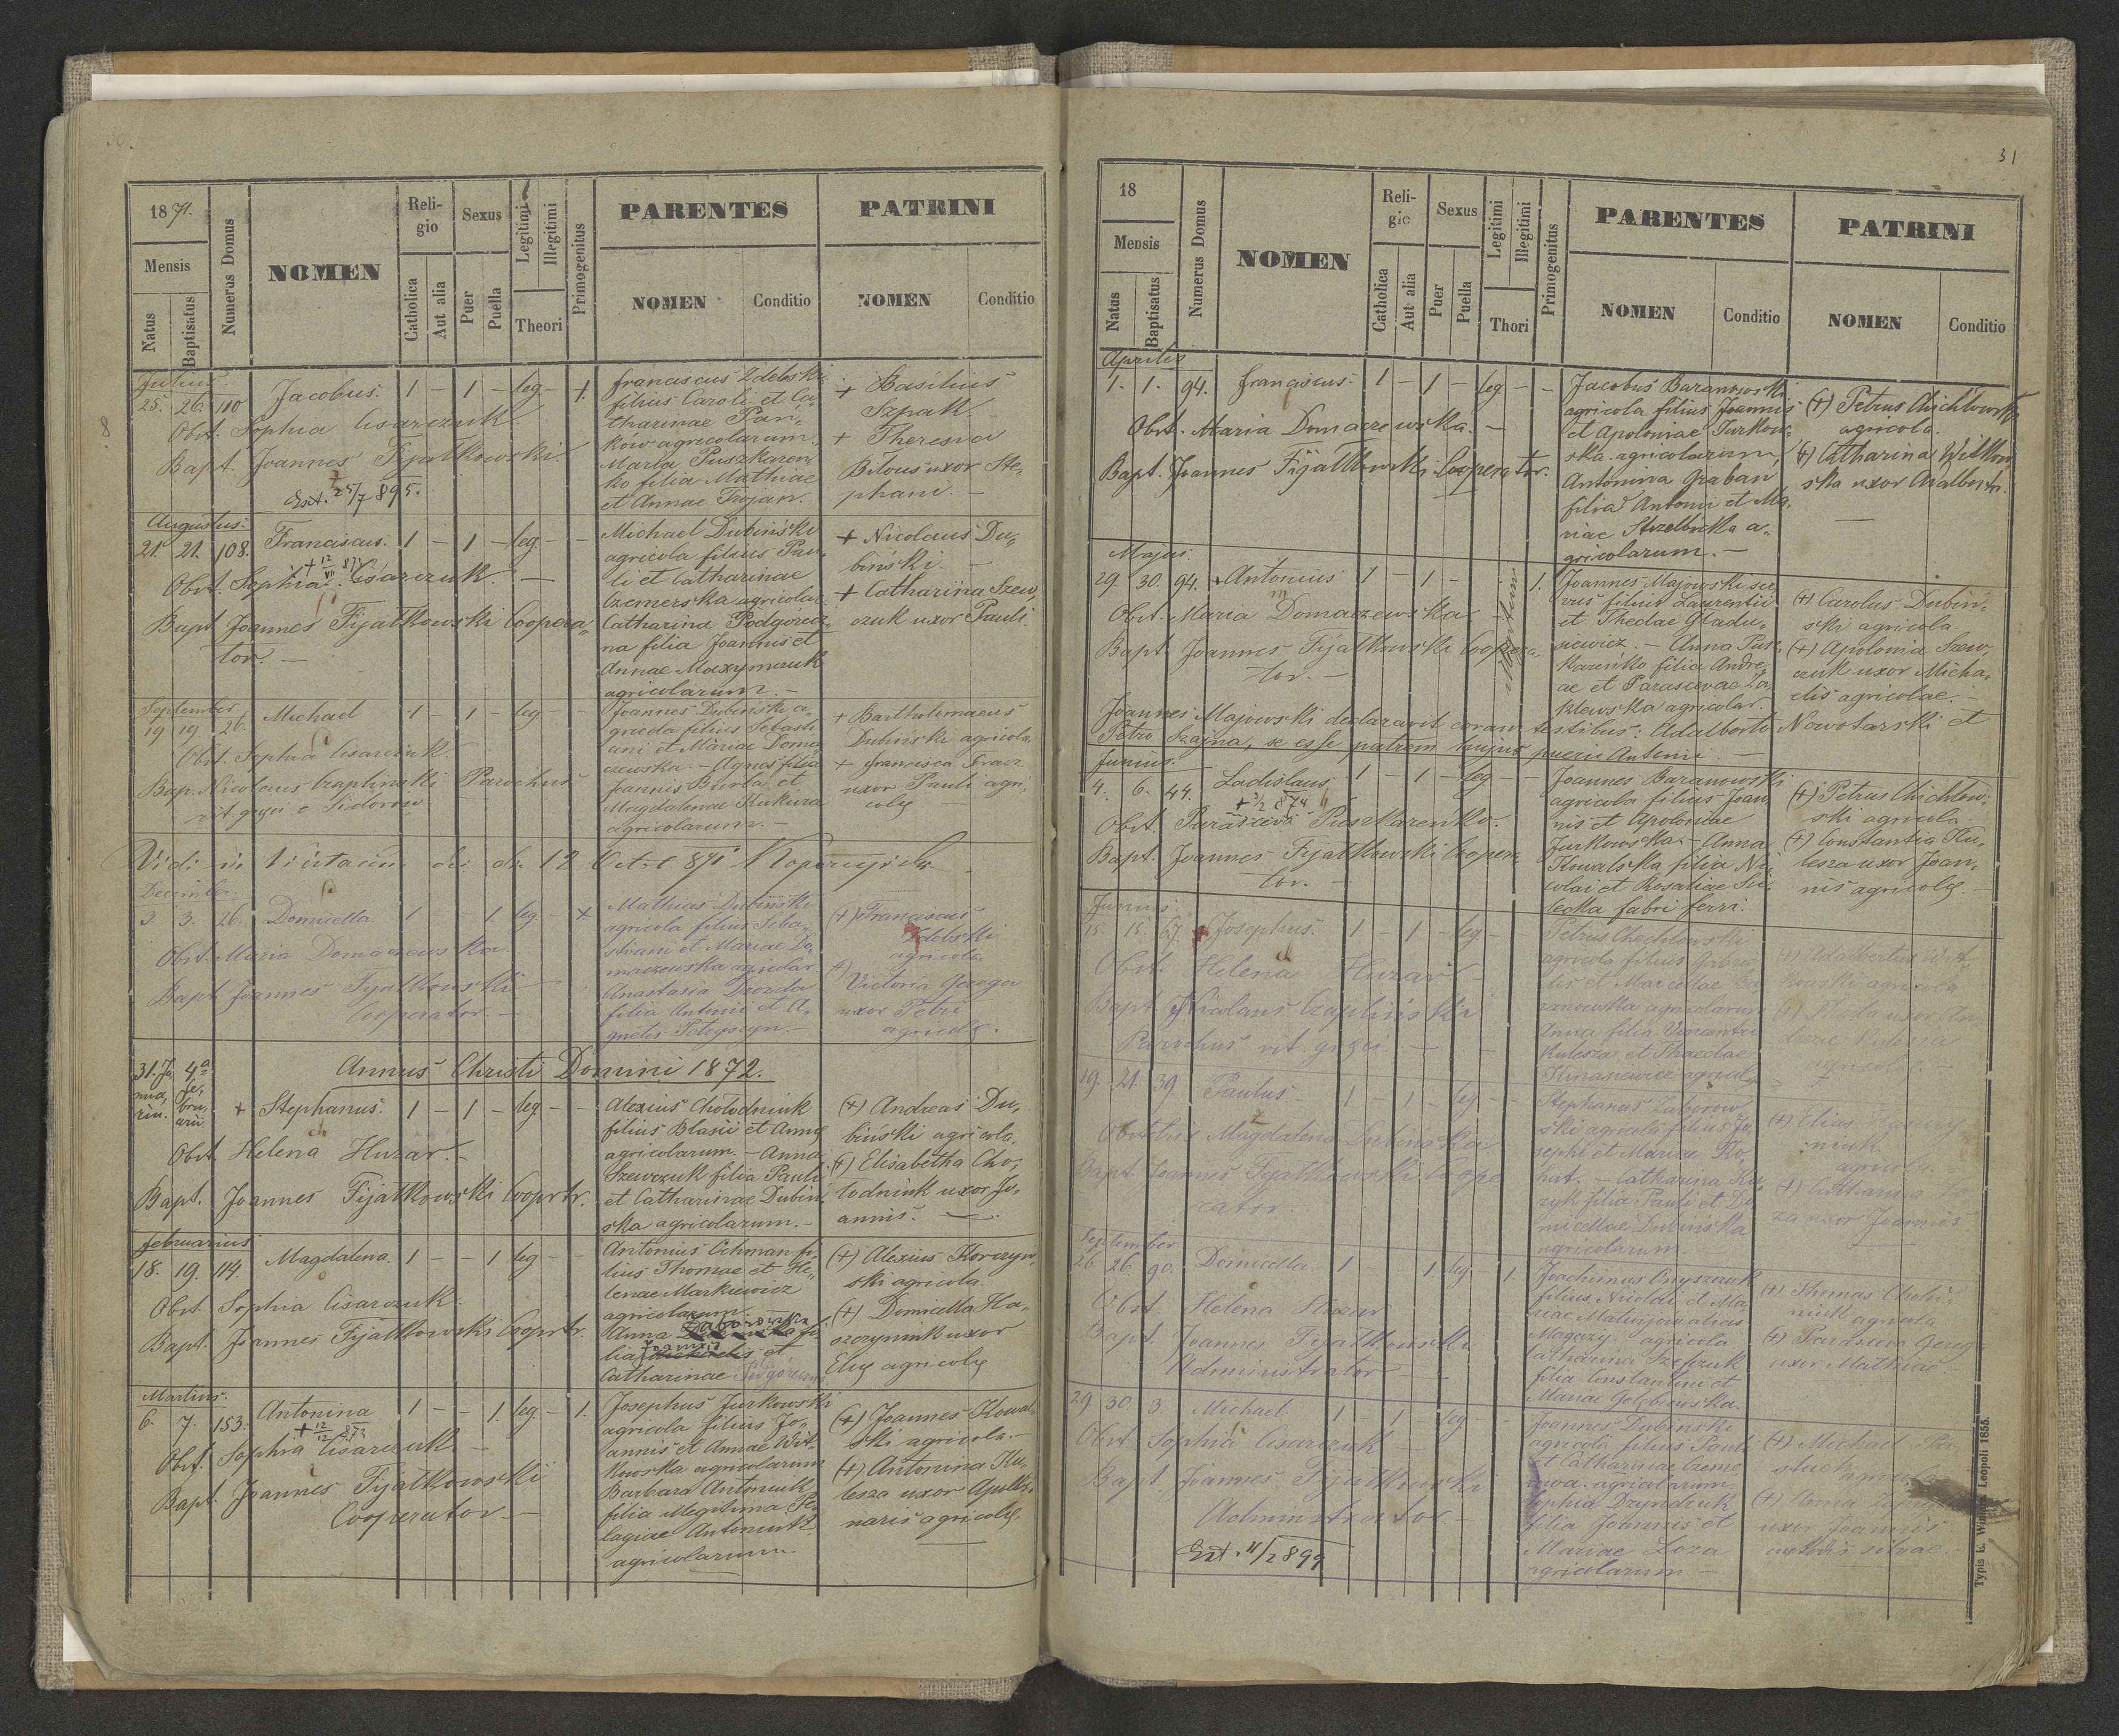 1871.
Mensis
Natus
Baptisatus
Numerus Domus
NOMEN
Religio
Catholica
Aut alia
Sexus
Puer
Puella
Legitimi
Illegitimi
Theori
Primogenitus
PARENTES
NOMEN
Conditio
PATRINI
NOMEN
Conditio
Julius.
25. 26. 110 Jacobus. 1 – 1 – leg – 1.
Obst. Sophia Cisarczuk.
Bapt. Joannes Fijałkowski.
Ext. 25/7 895.
Franciscus Zdebski
filius Caroli et Ca„
tharinae Pań„
ków agricolarum.
Maria Puszkaren„
ko filia Mathiae
et Annae Trojan.
+ Basilius
Szpak.
+ Theresia
Biłous uxor Ste„
phani. –
Augustus:
21. 21. 108. Franciscus. 1 – 1 – leg. – –
+ 12/VII 873
Obst. Sophia Cisarczuk. –
Bapt. Joannes Fijałkowski Coopera„
tor. –
Michael Dubiński
agricola filius Pau„
li et Catharinae
Czemerska agricolar.
Catharina Podgorecz„
na filia Joannis et
Annae Maxymczuk
agricolarum. –
+ Nicolaus Du„
biński. –
+ Catharina Szew„
czuk uxor Pauli.
September
19 19 26. Michael 1 – 1 – leg – –
Obst. Sophia Cisarczuk.
Bap. Nicolaus Czapliński Parochus
rit. graeci e Sidorów
Joannes Dubiński a„
gricola filius Sebasti
ani et Mariae Doma
czewska. – Agnes filia
Joannis Burba et
Magdalenae Kukura
agricolarum. –
+ Bartholomaeus
Dubiński agricola.
+ Francisca Fracz
uxor Pauli agri„
colę –
Vidi in
12 Oct 871
December.
3 3. 26. Domicella. 1 – – 1. leg. – +
Obst. Maria Domaczewska
Bapt Joannes Fijałkowski
Cooperator. –
Mathias Dubiński
agricola filius Seba„
stiani et Mariae Do„
maczewska agricolar
Anastasia Drozda
filia Antonii et A„
gnetis Petryszyn. –
(+) Franciscus
Zdebski
agricola.
(+) Victoria Gerega
uxor Petri
agricolę.
Annus Christi Domini 1872.
31. Ja„
nua„
rii.
4ª
Fe„
bru„
arii.
+ Stephanus. 1 – 1 – leg. – –
Obst. Helena Huzar. –
Bapt. Joannes Fijałkowski Cooprtr.
Alexius Chołodniuk
filius Blasii et Annę
agricolarum. – Anna
Szewczuk filia Pauli
et Catharinae Dubiń„
ska agricolarum. –
(+) Andreas Du„
biński agricola.
(+) Elisabetha Cho„
łodniuk uxor Jo„
annis. –
Februarius
18. 19. 114. Magdalena. 1 – – 1 leg – –
Obst. Sophia Cisarczuk.
Bapt. Joannes Fijałkowski Cooprtr.
Antonius Ochman fi„
lius Thomae et He„
lenae Markiewicz
agricolarum.
Anna Zaborowska fi„
lia Joannis et
Catharinae
(+) Alexius Korczyń„
ski agricola.
(+) Domicella Ha„
szczyniuk uxor
Elię agricolę
Martius.
6. 7. 153. Antonina 1 – – 1. leg. – 1.
+ 12/12 873
Obst. Sophia Cisarczuk –
Bapt. Joannes Fijałkowski
Cooperator. –
Josephus Jurkowski
agricola filius Jo„
annis et Annae Wit„
kowska agricolarum
Barbara Antoniuk
filia illegitima Pe„
lagiae Antoniuk
agricolarum
(+) Joannes Kowal„
ski agricola. –
(+) Antonina Ku„
lesza uxor Apolli„
naris agricolę.
31
18
Mensis
Natus
Baptisatus
Numerus Domus
NOMEN
Religio
Catholica
Aut alia
Sexus
Puer
Puella
Legitimi
Illegitimi
Thori
Primogenitus
PARENTES
NOMEN
Conditio
PATRINI
NOMEN
Conditio
Aprilis
1. 1. 94. Franciscus. 1 – 1 – leg – –
Obst. Maria Domaczewska. –
Bapt. Joannes Fijałkowski Cooperator.
Jacobus Baranowski
agricola filius Joannis
et Apoloniae Jurkow„
ska agricolarum,
Antonina Graban
filia Antonii et Ma„
riae Strzelbicka a„
gricolarum. –
(+) Petrus Chichłowski
agricola.
(+) Catharina Witkow„
ska uxor Adalberti.
Majus.
29. 30. 94. + Antonius 1 – 1 – 1.
Obst. Maria Domaczewska
Bapt. Joannes Fijałkowski Coopera„
tor. –
Joannes Majowski ser„
vus filius Laurentii
et Theclae Gładu„
siewicz. – Anna Pusz„
kareńko filia Andre„
ae et Parascevae Za„
klewska agricolar.
(+) Carolus Dubiń„
ski agricola.
(+) Apolonia Szew„
czuk uxor Micha„
elis agricolae. –
Joannes Majowski declaravit coram testibus: Adalberto Nowotarski et
Petro Szajna, se esse patrem hujus pueri Antonii –
Junius.
4. 6. 44. Ladislaus. 1 – 1 – leg. – –
+ 3/2 874
Obst. Parasceva Puszkareńko.
Bapt. Joannes Fijałkowski Coopera„
tor. –
Joannes Baranowski
agricola filius Joan„
nis et Apoloniae
Jurkowska – Anna
Kowalska filia Ni„
colai et Rosaliae Su„
lecka fabri ferri.
(+) Petrus Chichłow„
ski agricola.
(+) Constantia Ku„
lesza uxor Joan„
nis agricolę. –
Junius
15. 15. 67. Josephus. 1 – 1 – leg –
Obst. Helena Huzar –
Bapt. Nicolaus Czapliński
Parochus rit. graeci. – –
Petrus Chechłowski
agricola filius Gabrie„
lis et Marcellae Ba„
ranowska agricolarum
Anna filia Vincentii
Kulesza et Theclae
(+) Adalbertus Wit„
kowski agricola
agricolę. –
19. 21. 39. Paulus – 1 – 1 – leg – –
Obsttrix Magdalena Dubińska.
Bapt. Joannes Fijałkowski Coope
rator.
Stephanus Zaborow„
ski agricola filius Jo„
sephi et Mariae Ko„
hut. – Catharina Ku„
zyk filia Pauli et Do„
micellae Dubińska
agricolarum
(+) Elias
agricola.
(+) Catharina
uxor Joannis
September
26 26. 90. Domicella 1 – – 1 leg – 1.
Obst. Helena Huzar
Bapt. Joannes Fijałkowski
Administrator –
Joachimus Onyszczuk
filius Nicolai et Ma„
riae
agricola
Catharina Szewczuk
filia Constantini et
Mariae Gołębiowska.
(+) Thomas Choło„
niuk agricola.
(+) Parasceva Gereg„
uxor Mathiae
29 30. 3 Michael 1 1 leg –
Obst. Sophia Cisarczuk –
Bapt. Joannes Fijałkowski
Administrator –
Ext. 11/2 899
Joannes Dubiński
agricola filius Pauli
et Catharinae Czeme
agricolarum
Sophia Dzyndzuk
filia Joannis et
Mariae Łoza
agricolarum –
(+) Michael
agricola
(+) Anna
uxor Joannis
Typis E. Winiarz Leopoli 1855.